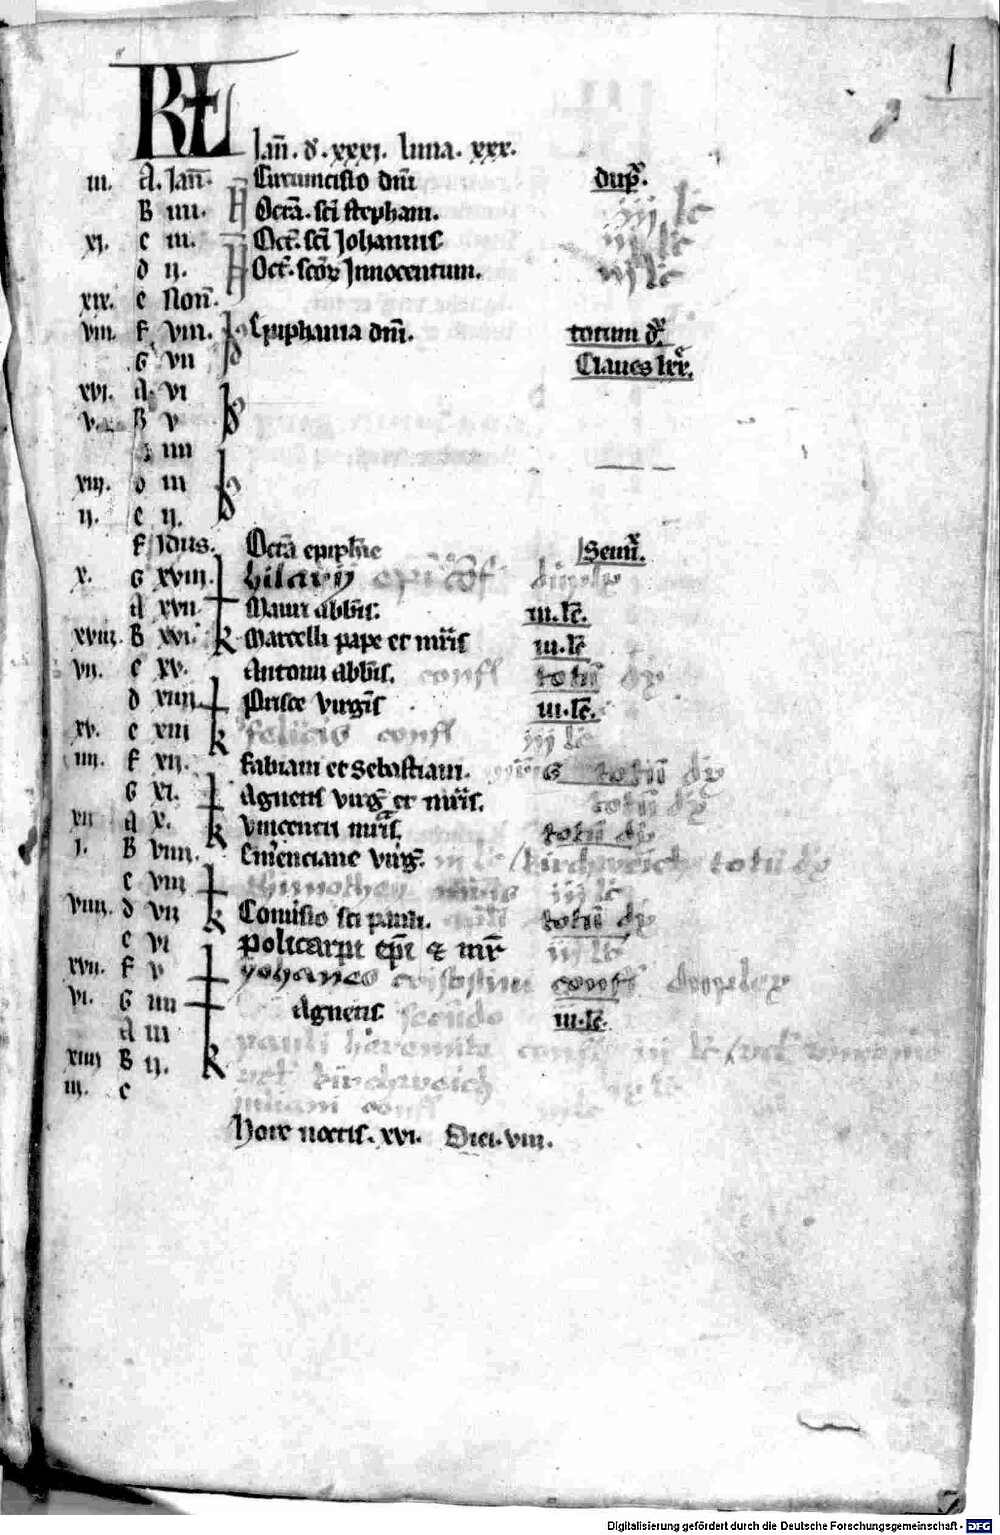 1
KL
Ian̄. d̄. xxxi. luna. xxx.
iii. A. Ian̄. Circumcisio dn̄i dup̄.
B iiii. Octā. sc̄i stephani. iij lc̄
xi. c iii. Oct̄. sc̄i Iohannis iij lc̄
d ii. Oct̄. sc̄oꝝ Innocentum. iij lc̄
xix. e Non̄.
viii. f viii. Epiphania dn̄i. totum d̄.
G vii Claues lxx̄.
xvi. A vi
v. B v
c iiii
xiii. d iii
ii. e ii.
f Idus. Octā epiph̄ie Semī.
x. G xviiii. hilarij ep̄i c̄of duplx
A xvii Mauri abb̄is. iii. lc̄.
xviii. B xvi Marcelli pape et mr̄is iii. lc̄
vii. c xv. Antonii abb̄is. conf totū dx
d xiiii Prisce virgīs iii. lc̄.
xv. e xiii felicis conf iij lc̄
iiii. f xii. Fabiani et Sebastiani. totū dx
G xi. Agnetis virḡ et mr̄is. totū dx
xii A x. Vincentii mr̄is. totū dx
i. B viiii. Emerenciane virḡ. iij lc̄ / kirchweich totū dx
c viii thimothey iij lc̄
viiii. d vii Conuersio sc̄i pauli. totū dx
e vi policarpi ep̄i et mr̄ iij lc̄
xvii. f v Johanes crisostimi conff duplex
vi. G iiii Agnetis secūdo iii. lc̄.
A iii pauli heremite conf iij lc̄
xiiii B ii. vel kirchweich
iii. c juliani conff iij lc̄
Hore noctis. xvi. Diei. viii.
Digitalisierung gefördert durch die Deutsche Forschungsgemeinschaft - DFG